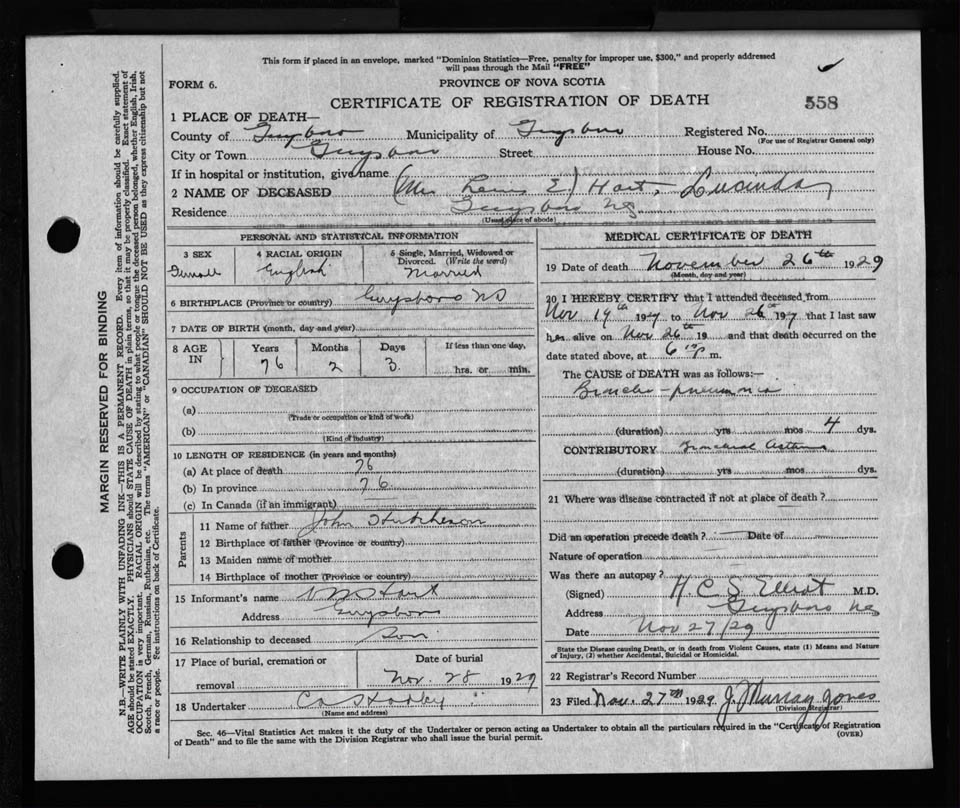 This form if placed in an envelope, marked "Dominion Statistics—Free, penalty for improper use, $300," and properly addressed
will pass through the Mail "FREE"
FORM 6.
PROVINCE OF NOVA SCOTIA
CERTIFICATE OF REGISTRATION OF DEATH
558
1 PLACE OF DEATH—
County of Guysboro Municipality of Guysboro Registered No.
(For use of Registrar General only)
City or Town Guysboro Street House No.
If in hospital or institution, give name
2 NAME OF DECEASED (Mrs Lewis E) Hart, Lucinda
Residence Guysboro NS
(Usual place of abode)
PERSONAL AND STATISTICAL INFORMATION
3 SEX
Female
4 RACIAL ORIGIN
English
5 Single, Married, Widowed or Divorced. (Write the word)
Married
6 BIRTHPLACE (Province or country) Guysboro NS
7 DATE OF BIRTH (month, day and year)
8 AGE IN
Years Months Days If less than one day,
76 2 3 hrs. or min.
9 OCCUPATION OF DECEASED
(a)
(Trade or occupation or kind of work)
(b)
(Kind of Industry)
10 LENGTH OF RESIDENCE (in years and months)
(a) At place of death 76
(b) In province 76
(c) In Canada (if an immigrant)
Parents
11 Name of father John Hutcheson
12 Birthplace of father (Province or country)
13 Maiden name of mother
14 Birthplace of mother (Province or country)
15 Informant's name Hart
Address Guysboro
16 Relationship to deceased Son
17 Place of burial, cremation or removal
Date of burial
Nov. 28 1929
18 Undertaker
(Name and address)
MEDICAL CERTIFICATE OF DEATH
19 Date of death November 26th 1929
(Month, day and year)
20 I HEREBY CERTIFY that I attended deceased from
Nov 19th 1927 to Nov 26th 1927 that I last saw
her alive on Nov 26th 19 and that death occurred on the
date stated above, at 6 m.
The CAUSE of DEATH was as follows:—
Broncho-pneumonia
(duration) yrs mos 4 dys.
CONTRIBUTORY
(duration) yrs mos dys.
21 Where was disease contracted if not at place of death?
Did an operation precede death? Date of
Nature of operation
Was there an autopsy?
(Signed) H. C. S. Elliot M.D.
Address Guysboro NS
Date Nov 27/29
State the Disease causing Death, or in death from Violent Causes, state (1) Means and Nature
of Injury, (2) whether Accidental, Suicidal or Homicidal.
22 Registrar's Record Number
23 Filed Nov. 27th 1929 J. Murray Jones
(Division Registrar)
Sec. 46—Vital Statistics Act makes it the duty of the Undertaker or person acting as Undertaker to obtain all the particulars required in the "Certificate of Registration
of Death" and to file the same with the Division Registrar who shall issue the burial permit.
(OVER)
MARGIN RESERVED FOR BINDING
N.B.—WRITE PLAINLY WITH UNFADING INK—THIS IS A PERMANENT RECORD. Every item of information should be carefully supplied.
AGE should be stated EXACTLY. PHYSICIANS should STATE CAUSE OF DEATH in plain terms, so that it may be properly classified. Exact statement of
OCCUPATION is very important. RACIAL ORIGIN will be described by stating to what people or tongue the deceased person belonged, whether English, Irish,
Scotch, French, German, Russian, Ruthenian, etc. The terms "AMERICAN" or "CANADIAN" SHOULD NOT BE USED as they express citizenship but not
a race or people. Fee instructions on back of Certificate.